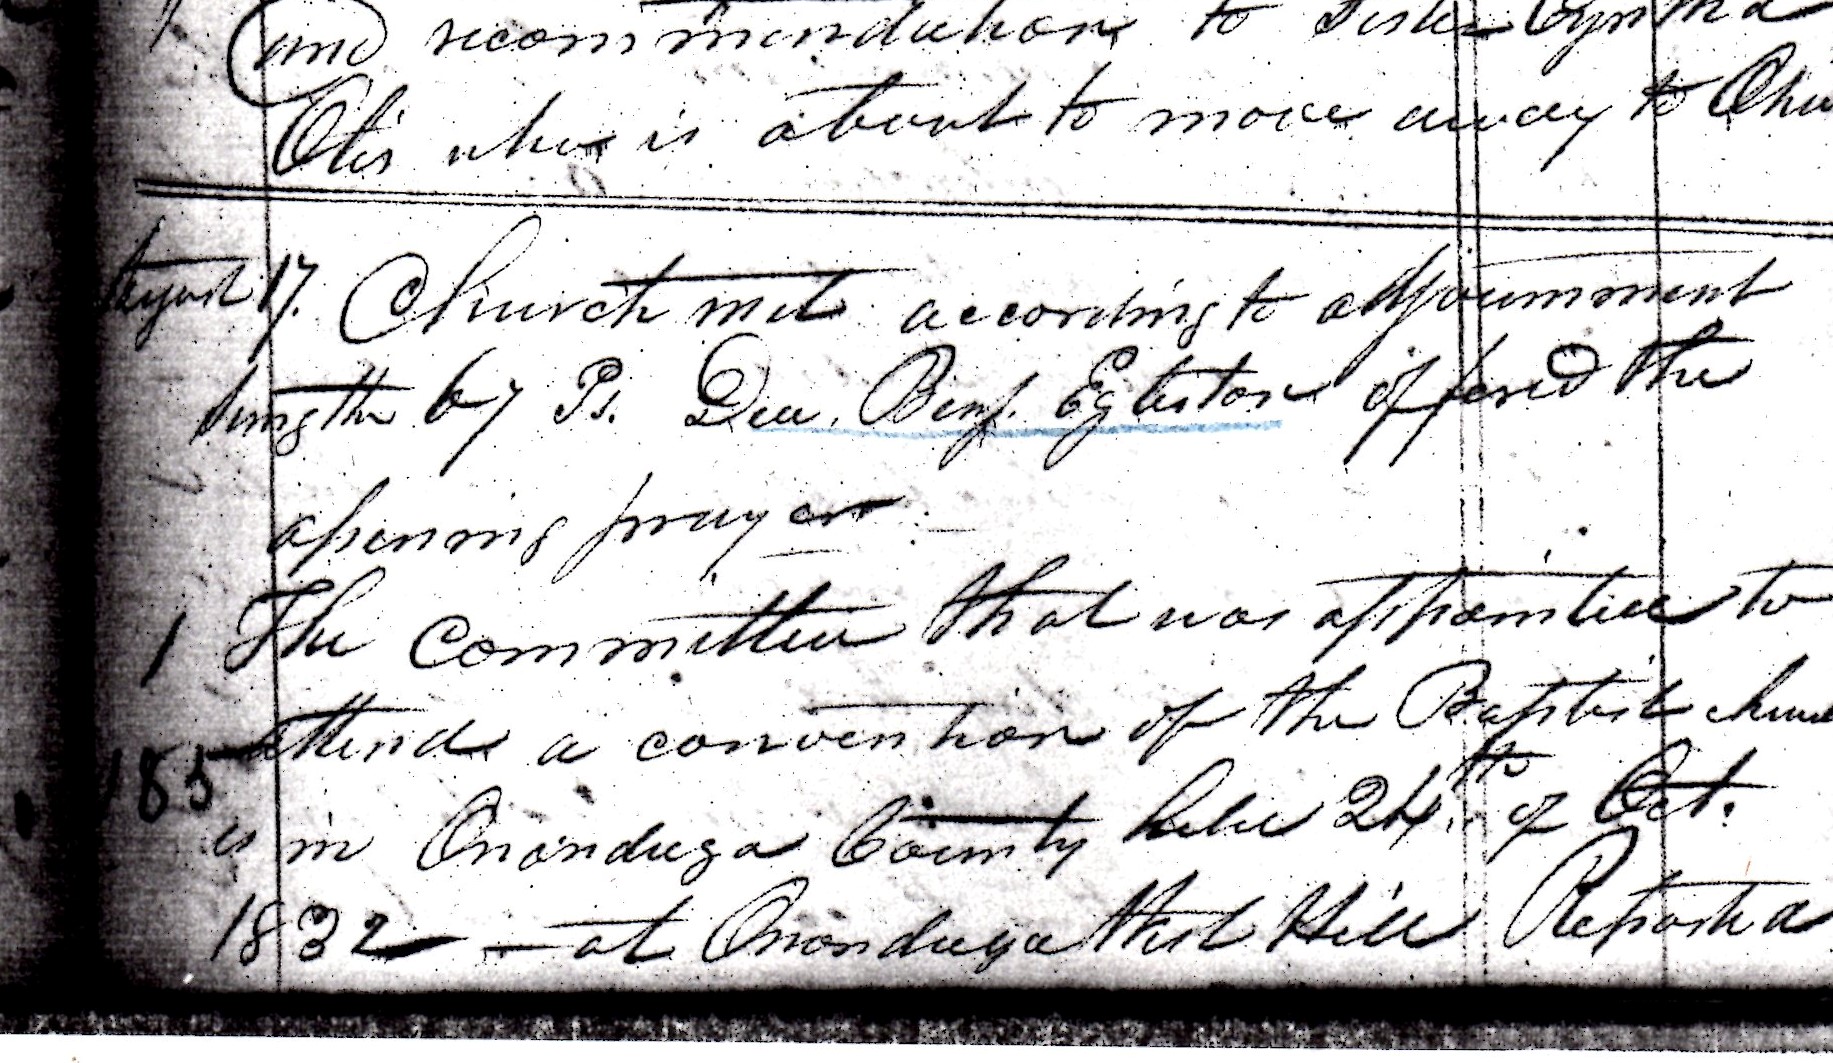 and recommendation to Sister Cynthia
Otis who is about to move away to Ohio
August 17. Church met according to adjournment
by Ps. Dea. Benj. Egleston offered the
opening prayer.
1 The committee that was appointed to
attend a convention of the Baptist church
185
es in Onondaga County held 24th of Oct.
1832 — at Onondaga West Hill Reported